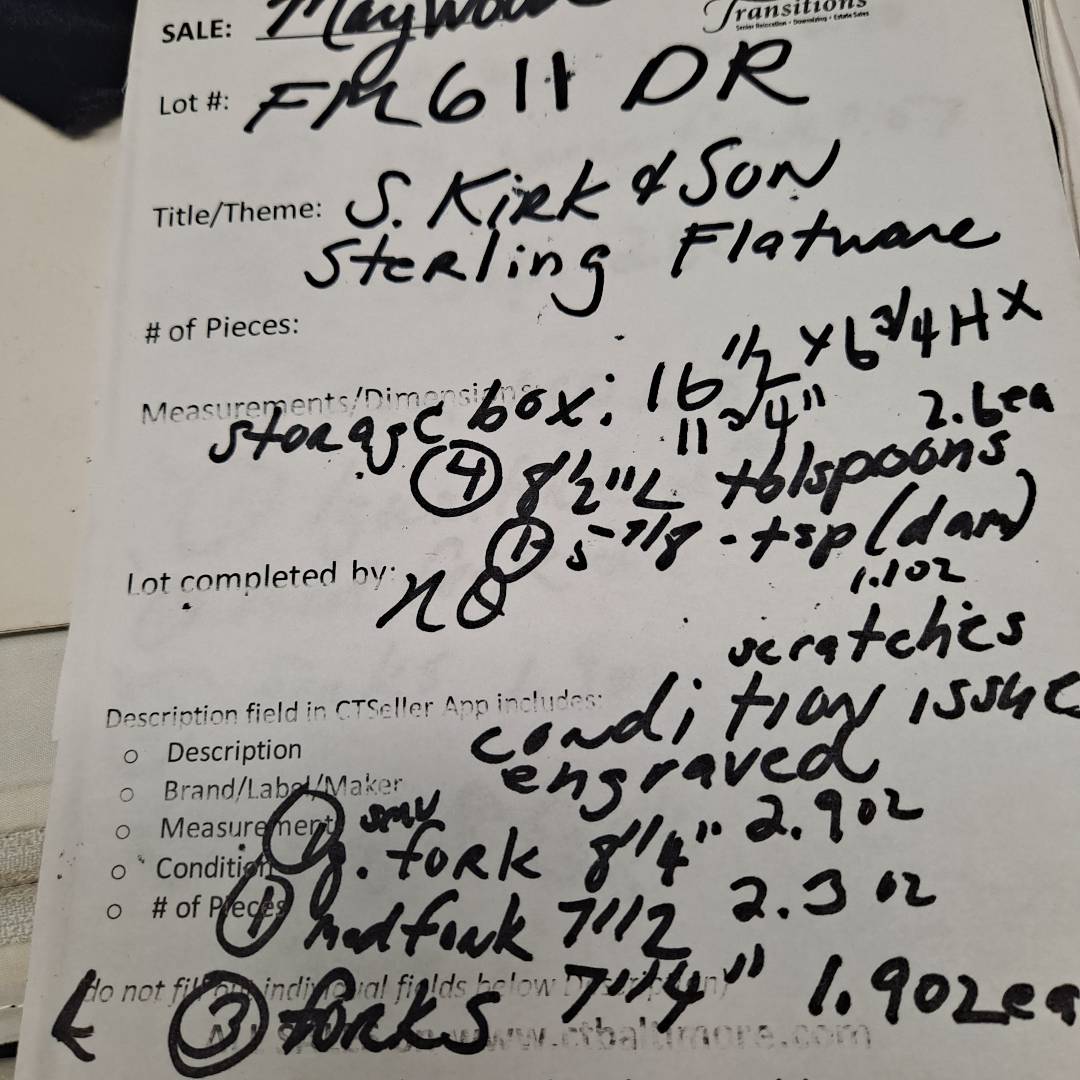 SALE:
Transitions
Senior Relocation • Downsizing • Estate Sales
Lot #: FM611 DR
Title/Theme: S. Kirk & Son
Sterling Flatware
# of Pieces:
Measurements/Dimensions:
storage box: 16 1/2 x 6 3/4 H x
11 3/4"
2.6 ea
4 8 1/2" L tblspoons
1 5-7/8 - tsp (dam)
1.1oz
Lot completed by:
scratches
condition issue
engraved
Description field in CTSeller App includes:
o Description
o Brand/Label/Maker
o Measurement
o Condition
o # of Pieces
1 serv
lg. fork 8 1/4" 2.9oz
1 med fork 7 1/2 2.3 oz
do not fill out individual fields below
3 forks 7 1/4" 1.9oz ea
www.ctbaltimore.com